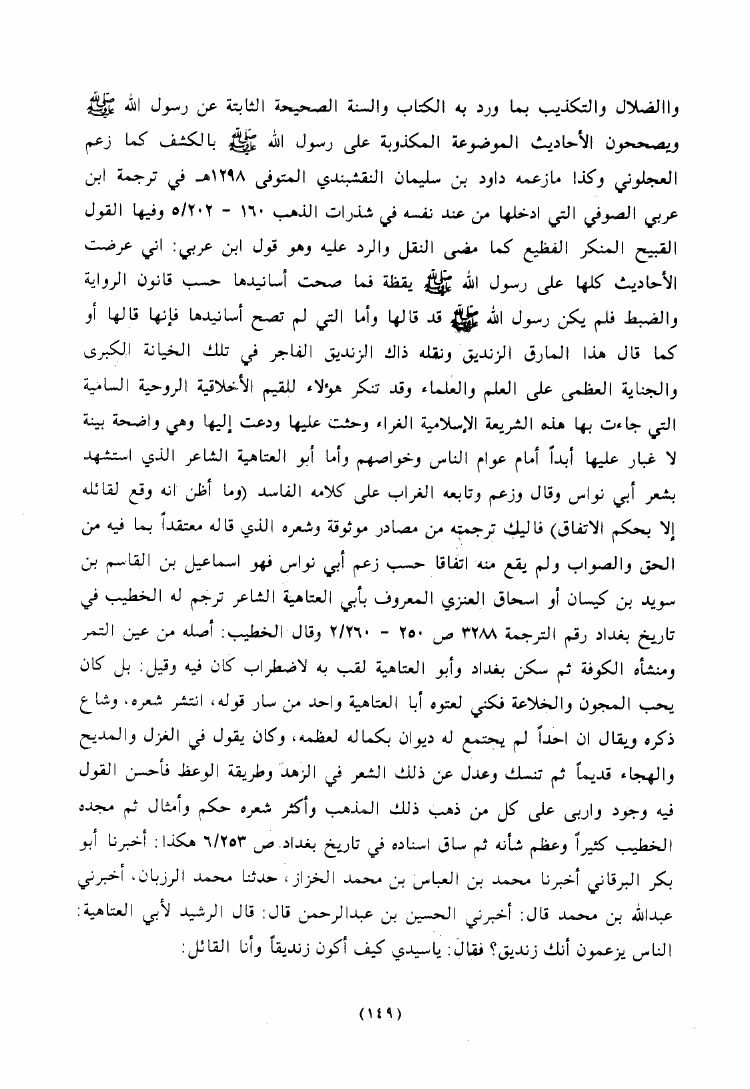 واالضلال والتكذيب بما ورد به الكتاب والسنة الصحيحة الثابتة عن رسول الله ﷺ
ويصححون الأحاديث الموضوعة المكذوبة على رسول الله ﷺ بالكشف كما زعم
العجلوني وكذا مازعمه داود بن سليمان النقشبندي المتوفى ١٢٩٨هـ في ترجمة ابن
عربي الصوفي التي ادخلها من عند نفسه في شذرات الذهب ١٦٠ - ٥/٢٠٢ وفيها القول
القبيح المنكر الفظيع كما مضى النقل والرد عليه وهو قول ابن عربي: اني عرضت
الأحاديث كلها على رسول الله ﷺ يقظة فما صحت أسانيدها حسب قانون الرواية
والضبط فلم يكن رسول الله ﷺ قد قالها وأما التي لم تصح أسانيدها فإنها قالها أو
كما قال هذا المارق الزنديق ونقله ذاك الزنديق الفاجر في تلك الخيانة الكبرى
والجناية العظمى على العلم والعلماء وقد تنكر هؤلاء للقيم الأخلاقية الروحية السامية
التي جاءت بها هذه الشريعة الإسلامية الغراء وحثت عليها ودعت إليها وهي واضحة بينة
لا غبار عليها أبداً أمام عوام الناس وخواصهم وأما أبو العتاهية الشاعر الذي استشهد
بشعر أبي نواس وقال وزعم وتابعه الغراب على كلامه الفاسد (وما أظن انه وقع لقائله
إلا بحكم الاتفاق) فاليك ترجمته من مصادر موثوقة وشعره الذي قاله معتقداً بما فيه من
الحق والصواب ولم يقع منه اتفاقا حسب زعم أبي نواس فهو اسماعيل بن القاسم بن
سويد بن كيسان أو اسحاق العنزي المعروف بأبي العتاهية الشاعر ترجم له الخطيب في
تاريخ بغداد رقم الترجمة ٣٢٨٨ ص ٢٥٠ - ٢/٢٦٠ وقال الخطيب: أصله من عين التمر
ومنشأه الكوفة ثم سكن بغداد وأبو العتاهية لقب به لاضطراب كان فيه وقيل: بل كان
يحب المجون والخلاعة فكني لعتوه أبا العتاهية واحد من سار قوله، انتشر شعره، وشاع
ذكره ويقال ان احداً لم يجتمع له ديوان بكماله لعظمه، وكان يقول في الغزل والمديح
والهجاء قديماً ثم تنسك وعدل عن ذلك الشعر في الزهد وطريقة الوعظ فأحسن القول
فيه وجود واربى على كل من ذهب ذلك المذهب وأكثر شعره حكم وأمثال ثم مجده
الخطيب كثيراً وعظم شأنه ثم ساق اسناده في تاريخ بغداد ص ٦/٢٥٣ هكذا: أخبرنا أبو
بكر البرقاني أخبرنا محمد بن العباس بن محمد الخزاز، حدثنا محمد الرزبان، أخبرني
عبدالله بن محمد قال: أخبرني الحسين بن عبدالرحمن قال: قال الرشيد لأبي العتاهية:
الناس يزعمون أنك زنديق؟ فقال: ياسيدي كيف أكون زنديقاً وأنا القائل:
(١٤٩)